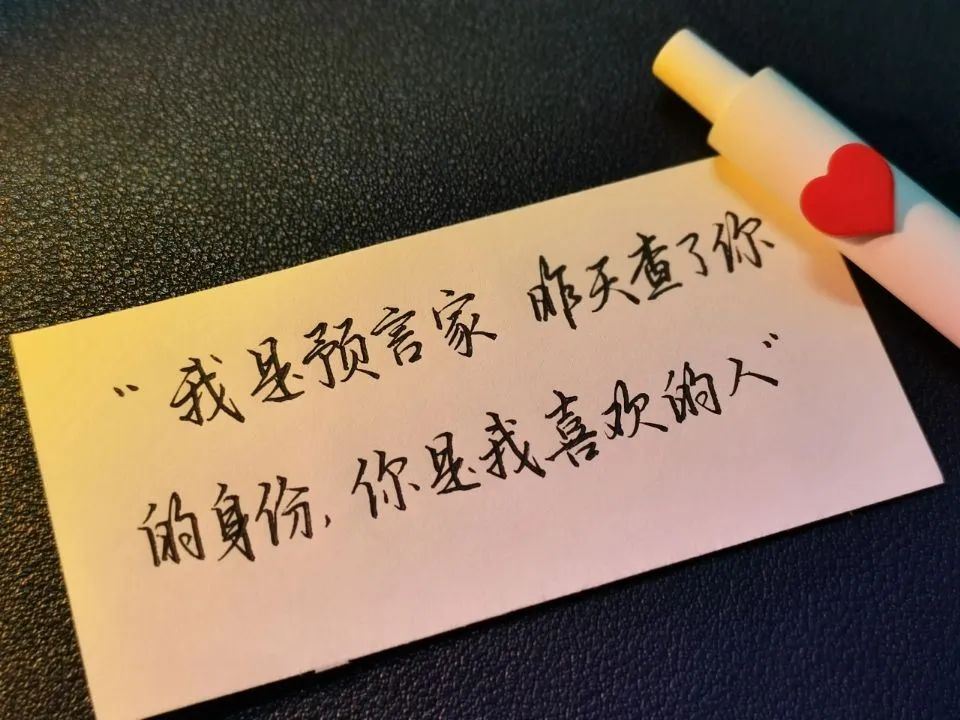 “我是预言家 昨天查了你
的身份,你是我喜欢的人”